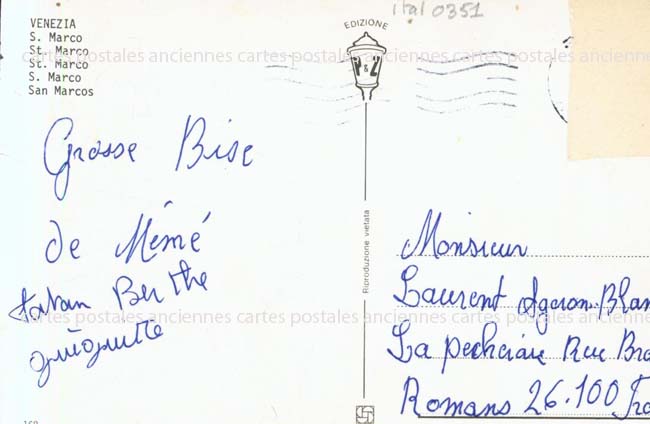 ital 0351
VENEZIA
S. Marco
St. Marco
St. Marco
S. Marco
San Marcos
EDIZIONE
P & Z
cartes postales anciennes cartes postales anciennes cartes postales anciennes
Grosse Bise
de Mémé
Berthe
Riproduzione vietata
Monsieur
Laurent
La Rue
Romans 26.100
cartes postales anciennes cartes postales anciennes cartes postales anciennes